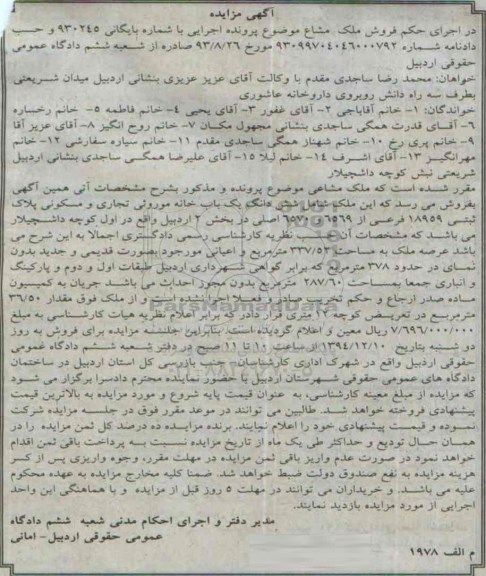 آگهی مزایده
در اجرای حکم فروش ملک مشاع موضوع پرونده اجرایی با شماره بایگانی ۹۳۰۲۴۵ و حسب
دادنامه شماره ۹۳۰۹۹۷۰۴۰۴۶۰۰۰۷۹۲ مورخ ۹۳/۸/۲۶ صادره از شعبه ششم دادگاه عمومی
حقوقی اردبیل
خواهان: محمد رضا ساجدی مقدم با وکالت آقای عزیز عزیزی بنشانی اردبیل میدان شریعتی
بطرف سه راه دانش روبروی داروخانه عاشوری
خواندگان: ۱- خانم آقاباجی ۲- آقای غفور ۳- آقای یحیی ۴- خانم فاطمه ۵- خانم رخساره
۶- آقای قدرت همگی ساجدی بنشانی مجهول مکان ۷- خانم روح انگیز ۸- آقای عزیز آقا
۹- خانم پری رخ ۱۰- خانم شهناز همگی ساجدی مقدم ۱۱- خانم سیاره سفارشی ۱۲- خانم
مهرانگیز ۱۳- آقای اشرف ۱۴- خانم لیلا ۱۵- آقای علیرضا همگی ساجدی بنشانی اردبیل
شریعتی نبش کوچه داشچیلار
مقرر شده است که ملک مشاعی موضوع پرونده و مذکور بشرح مشخصات آتی همین آگهی
بفروش می رسد که این ملک شامل شش دانگ یک باب خانه موروثی تجاری و مسکونی پلاک
ثبتی ۱۸۹۵۹ فرعی از ۶۵۶۹ و ۶۵۷۰ اصلی در بخش ۲ اردبیل واقع در اول کوچه داشچیلار
می باشد که مشخصات آن حسب نظریه کارشناسی رسمی دادگستری اجمالا به این شرح می
باشد عرصه ملک به مساحت ۳۳۷/۵۳ مترمربع و اعیانی موجود بصورت قدیمی و جدید بدون
نمای در حدود ۳۷۸ مترمربع که برابر گواهی شهرداری اردبیل طبقات اول و دوم و پارکینگ
و انباری جمعا بمساحت ۲۸۷/۶۰ مترمربع بدون مجوز احداث می باشد جریان به کمیسیون
ماده صدر ارجاع و حکم تخریب صادر و فعلا اجرا نشده است و از ملک فوق مقدار ۳۶/۵۰
مترمربع در تعریض کوچه ۱۲ متری قرار دارد که برابر اعلام نظریه هیات کارشناسی به مبلغ
۷/۶۹۶/۰۰۰/۰۰۰ ریال معین و اعلام گردیده است. بنابراین جلسه مزایده برای فروش به روز
دو شنبه بتاریخ ۱۳۹۴/۱۲/۱۰ از ساعت ۱۰ تا ۱۱ صبح در دفتر شعبه ششم دادگاه عمومی
حقوقی اردبیل واقع در شهرک اداری کارشناسان- جنب بازرسی کل استان اردبیل در ساختمان
دادگاه های عمومی حقوقی شهرستان اردبیل با حضور نماینده محترم دادسرا برگزار می شود
که مزایده از مبلغ معینه کارشناسی، به عنوان قیمت پایه شروع و مورد مزایده به بالاترین قیمت
پیشنهادی فروخته خواهد شد. طالبین می توانند در موعد مقرر فوق در جلسه مزایده شرکت
نموده و قیمت پیشنهادی خود را اعلام نمایند. برنده مزایده ده درصد کل ثمن مزایده را در
همان حال تودیع و حداکثر طی یک ماه از تاریخ مزایده نسبت به پرداخت باقی ثمن اقدام
خواهد نمود در صورت عدم واریز باقی ثمن مزایده در مهلت مقرر، وجوه واریزی پس از کسر
هزینه مزایده به نفع صندوق دولت ضبط خواهد شد. ضمنا کلیه مخارج مزایده به عهده محکوم
علیه می باشد. و خریداران می توانند در مهلت ۵ روز قبل از مزایده و با هماهنگی این واحد
اجرایی از مورد مزایده بازدید نمایند.
مدیر دفتر و اجرای احکام مدنی شعبه ششم دادگاه
عمومی حقوقی اردبیل- امانی
م الف ۱۹۷۸